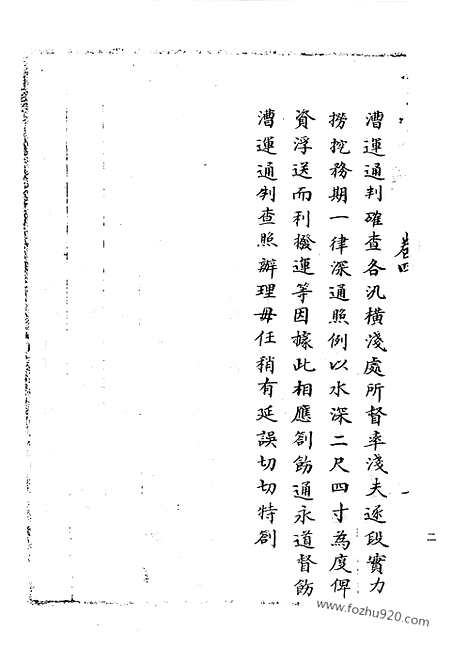 漕運通判確查各汛橫淺處所督率淺夫逐段實力
撈挖務期一律深通照例以水深二尺四寸為度俾
資浮送而利撥運等因據此相應劄飭通永道督飭
漕運通判查照辦理毋任稍有延誤切切特劄
卷四
一
二
www.fozhu920.com